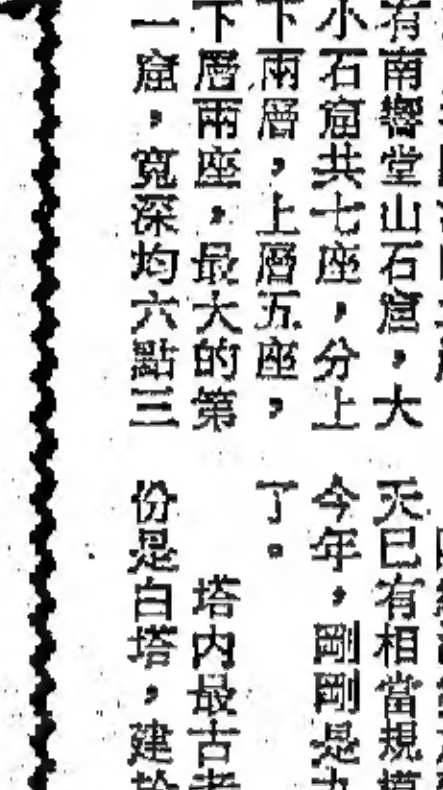 有南響堂山石窟，大
小石窟共七座，分上
下兩層，上層五座，
下層兩座，最大的第
一窟，寬深均六點三
天已有相當規模
今年，剛剛是九
了。
塔內最古老
份是白塔，建於